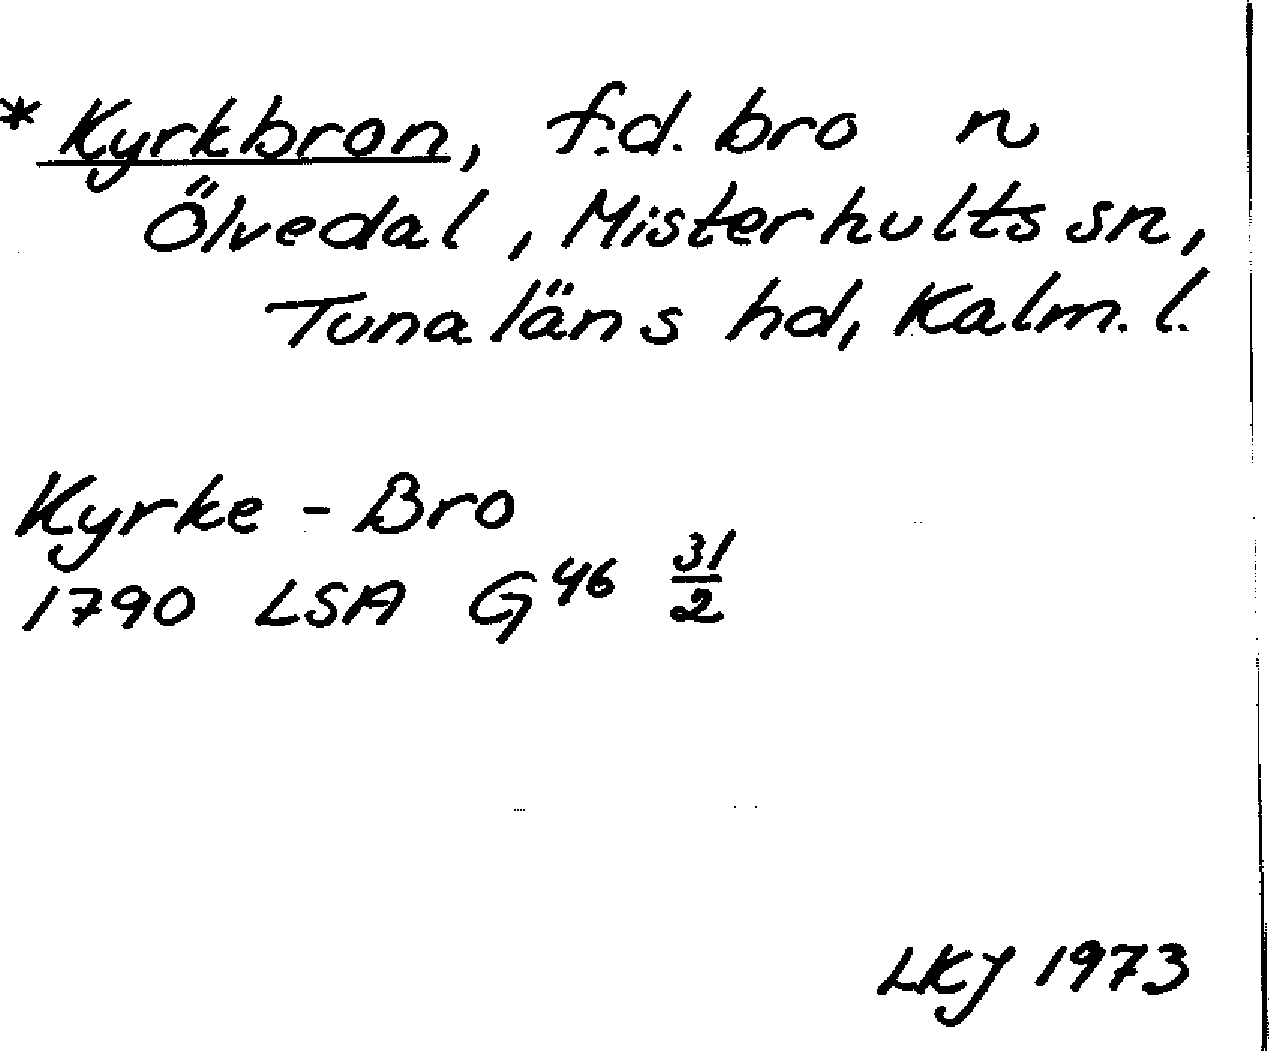 * Kyrkbron, f.d. bro n
Ölvedal, Misterhults sn,
Tunaläns hd, Kalm. l.
Kyrke-Bro
1790 LSA G46 31/2
LKJ 1973